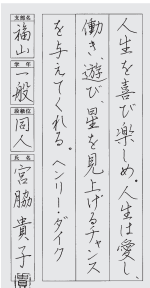 人生を喜び楽しめ。人生は愛し、
働き、遊び、星を見上げるチャンス
を与えてくれる。ヘンリーダイク
支部名
福山
学年
一般
段級位
同人
氏名
宮脇貴子